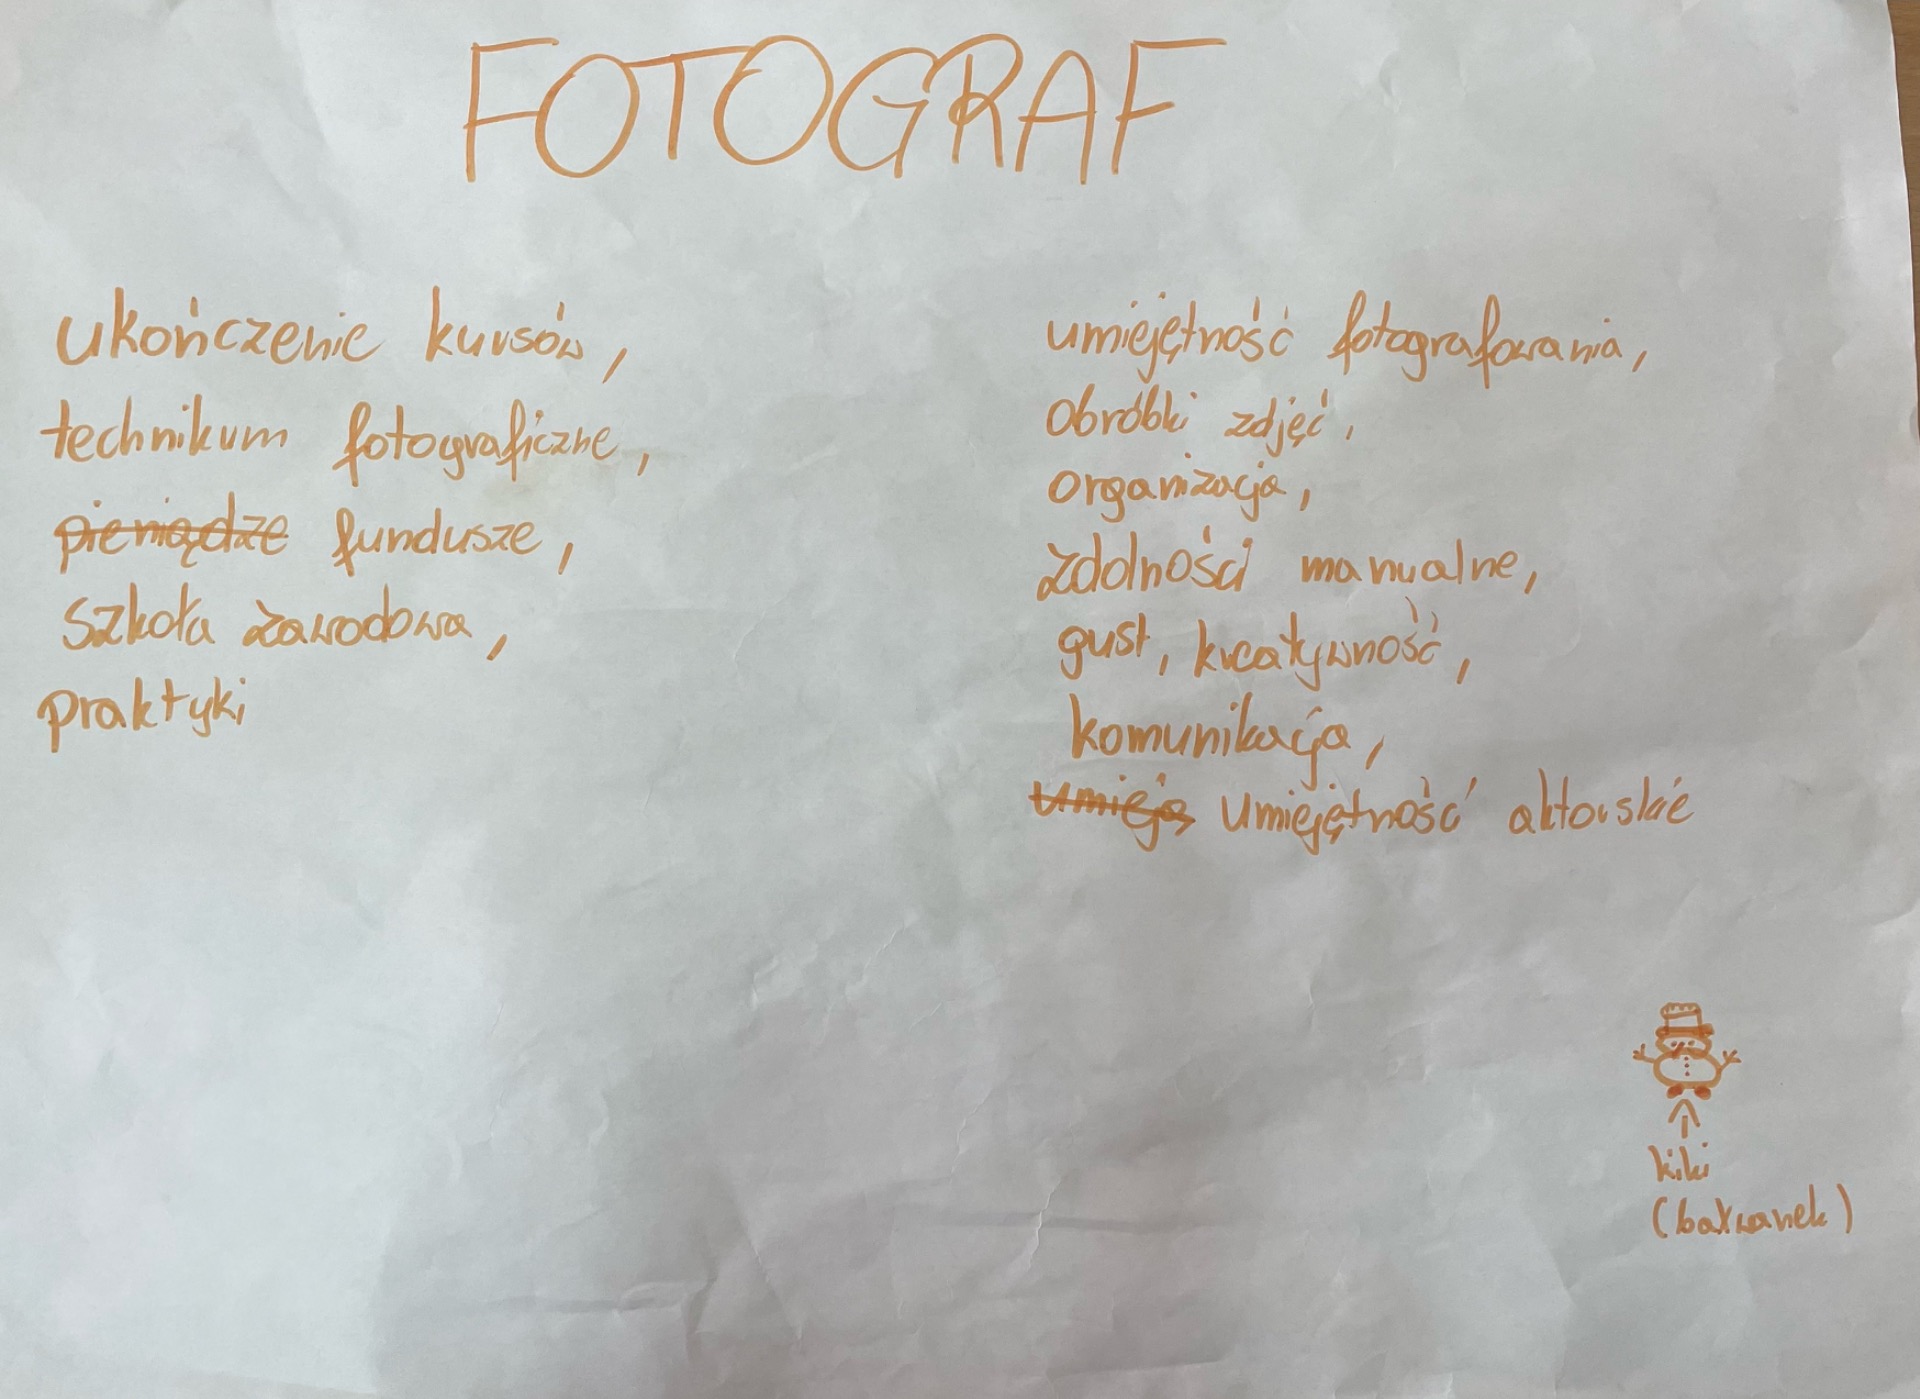 FOTOGRAF
ukończenie kursów,
technikum fotograficzne,
pieniądze fundusze,
szkoła zawodowa,
praktyki
umiejętność fotografowania,
obróbki zdjęć,
organizacja,
zdolności manualne,
gust, kreatywność,
komunikacja,
umieją umiejętność aktorskie
kiki
(bałwanek)